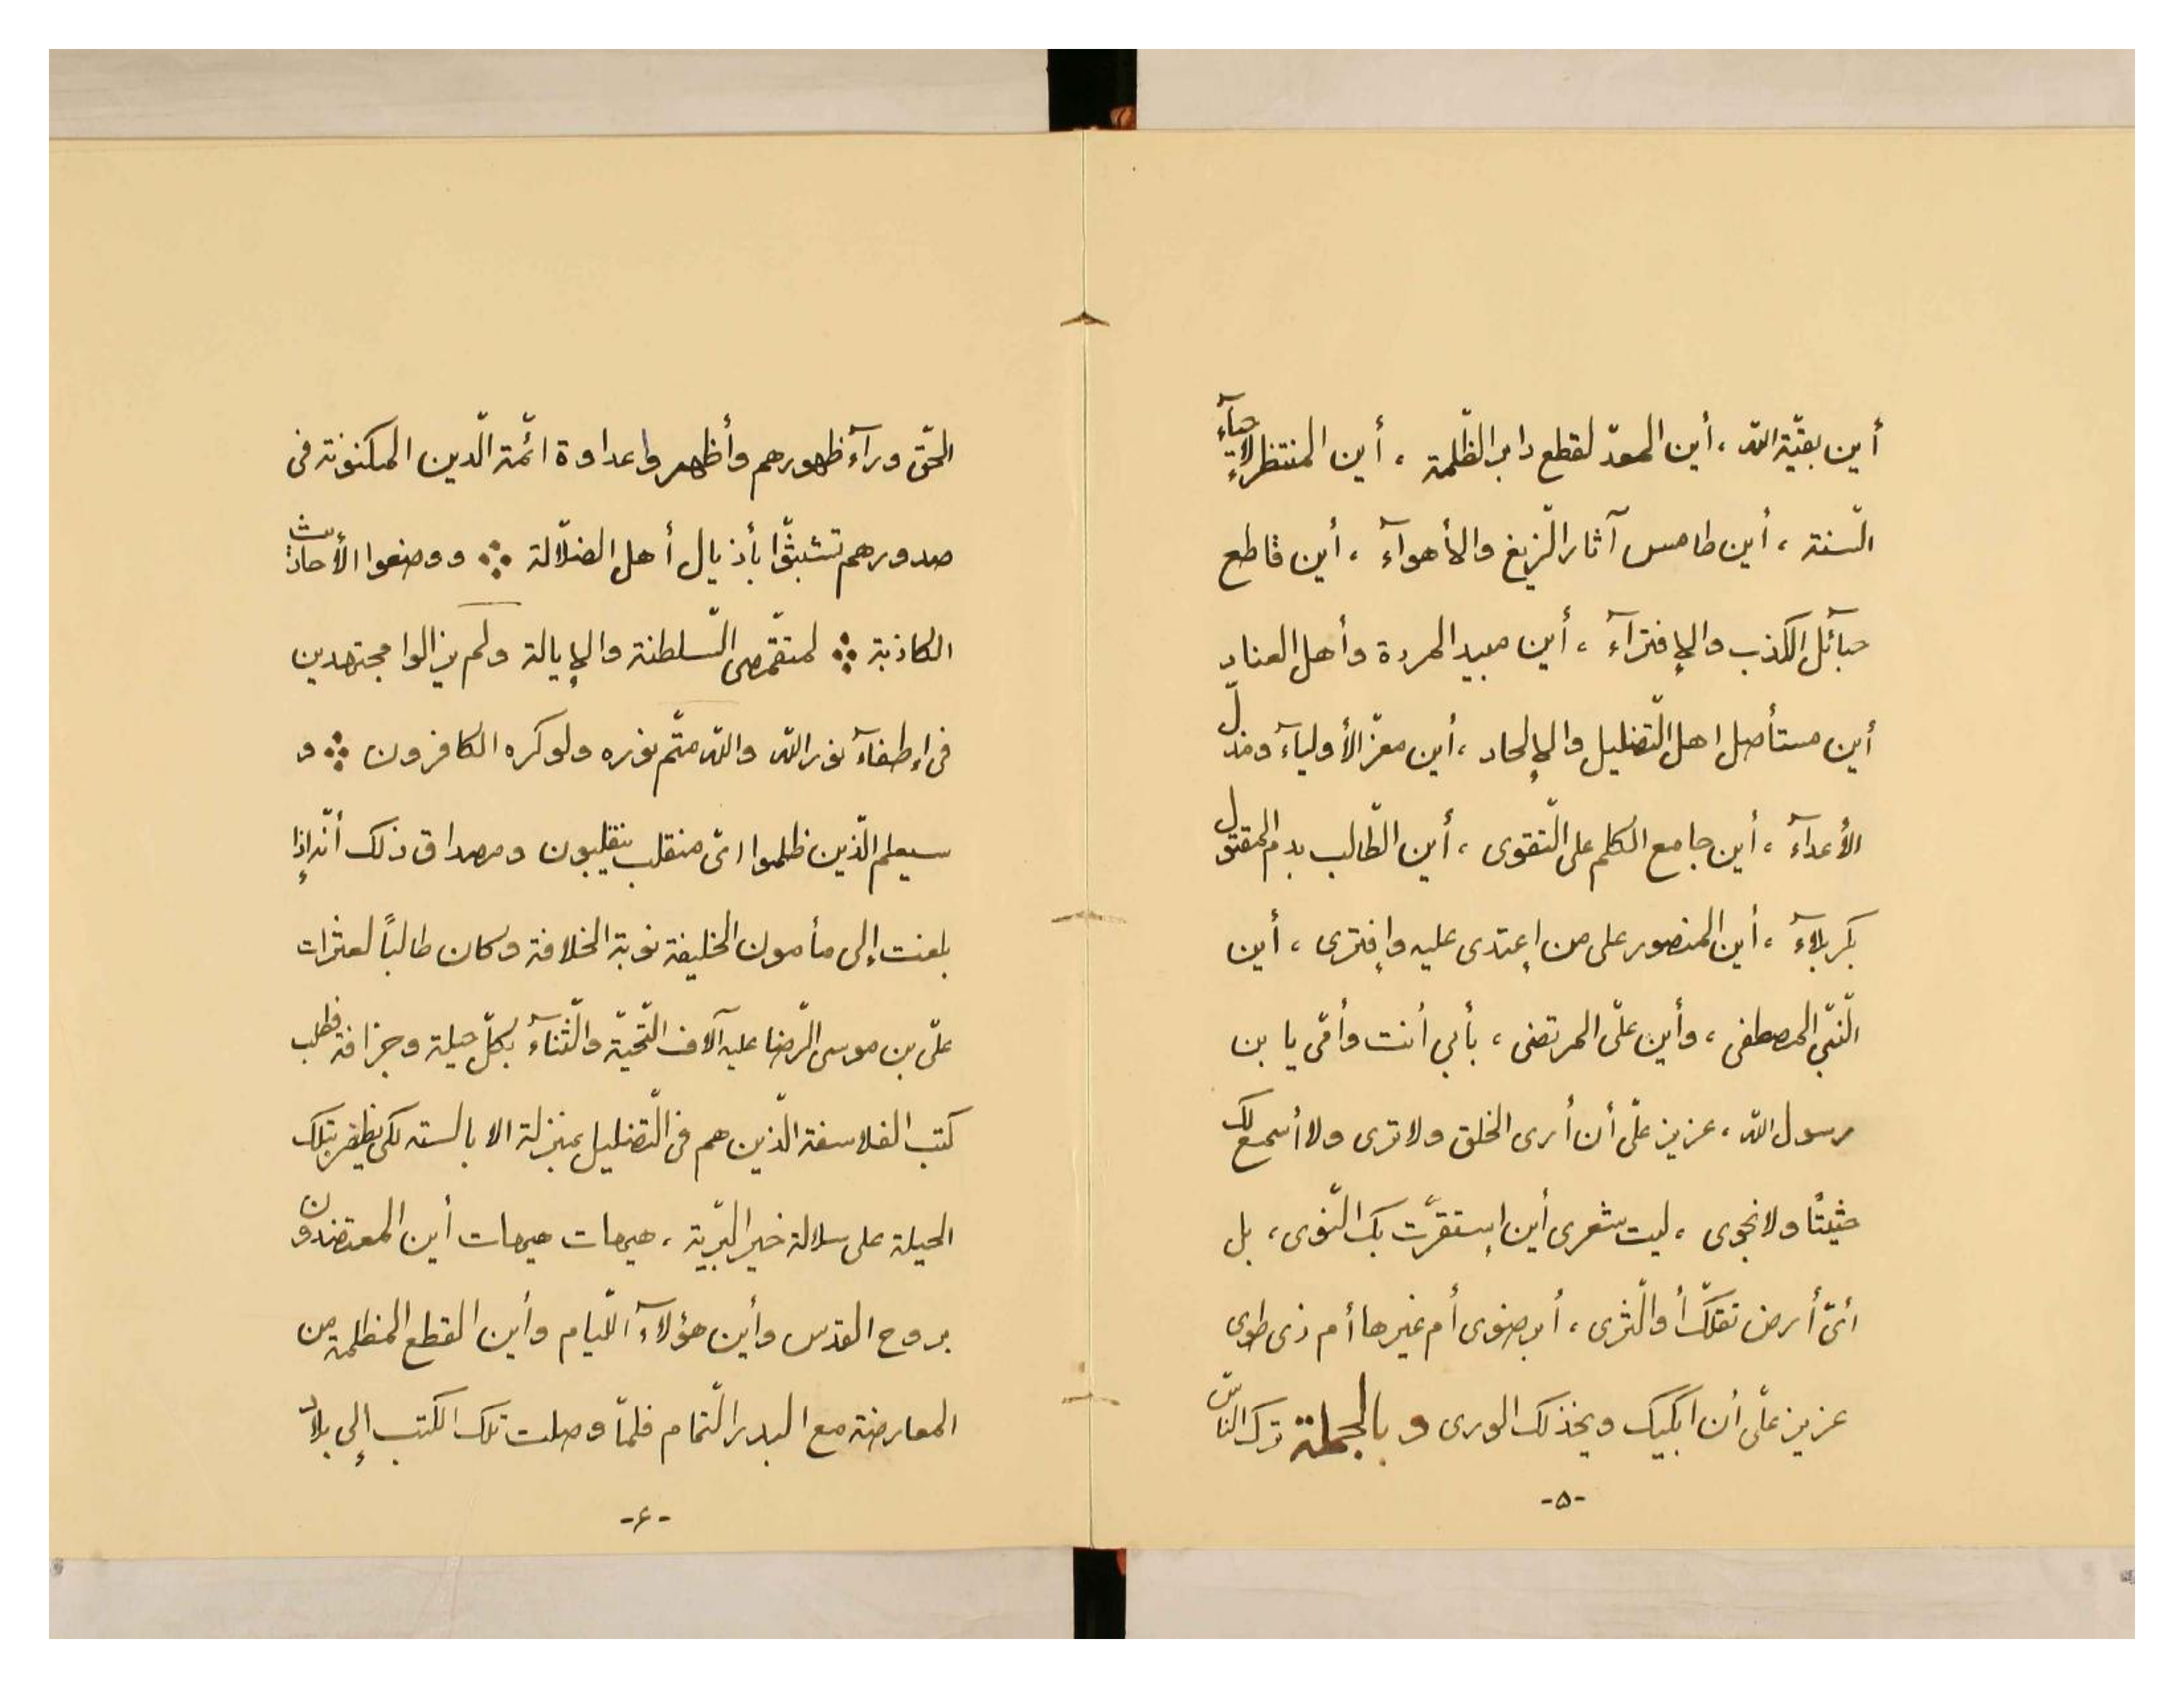 أين بقيّة الله ، أين المعدّ لقطع دابر الظّلمة ، أين المنتظر لإحيآء
السّنة ، أين طامس آثار الزّيغ والأهوآء ، أين قاطع
حبآئل الكذب والإفترآء ، أين مبيد المردة وأهل العناد
أين مستأصل اهل التّضليل والإلحاد ، أين معزّ الأوليآء ومذلّ
الأعدآء ، أين جامع الكلم على التّقوى ، أين الطّالب بدم المقتول
بكربلاء ، أين المنصور على من إعتدى عليه وإفترى ، أين
النّبّى المصطفى ، وأين علىّ المرتضى ، بأبي أنت وأمّى يا بن
رسول الله ، عزيز علىّ أن أرى الخلق ولا ترى ولا أسمع لك
حثيثًا ولا نجوى ، ليت شعرى أين إستقرّت بك النّوى ، بل
أىّ أرض تقلّك أو الثّرى ، أبرضوى أم غيرها أم ذى طوى
عزيز علىّ أن ابكيك ويخذلك الورى و بالجملة ترك النّاس
-۵-
الحقّ ورآء ظهورهم وأظهروا عداوة ائمّة الدّين المكنونة فى
صدورهم تشبثّوا بأذيال أهل الضلالة ووضعوا الأحاديث
الكاذبة لمتقمّصى السّلطنة والإيالة ولم يزالوا مجتهدين
فى إطفآء نور الله والله متمّ نوره ولو كره الكافرون و
سيعلم الّذين ظلموا اىّ منقلب ينقلبون ومصداق ذلك أنّه إذا
بلغت إلى مأمون الخليفة نوبة الخلافة وكان طالبًا لعثرات
علىّ بن موسى الرّضا عليه آلاف التّحيّة والثّنآء بكلّ حيلة وجزافة فطلب
كتب الفلاسفة الّذين هم فى التّضليل بمنزلة الابالسته لكى يظفر بتلك
الحيلة على سلالة خير البّرية ، هيهات هيهات أين المعتضدون
بروح القدس وأين هؤلآء اللّيام وأين القطع المظلمة من
المعارضة مع البدر التّمام فلمّا وصلت تلك الكتب إلى بلاد
-۶-